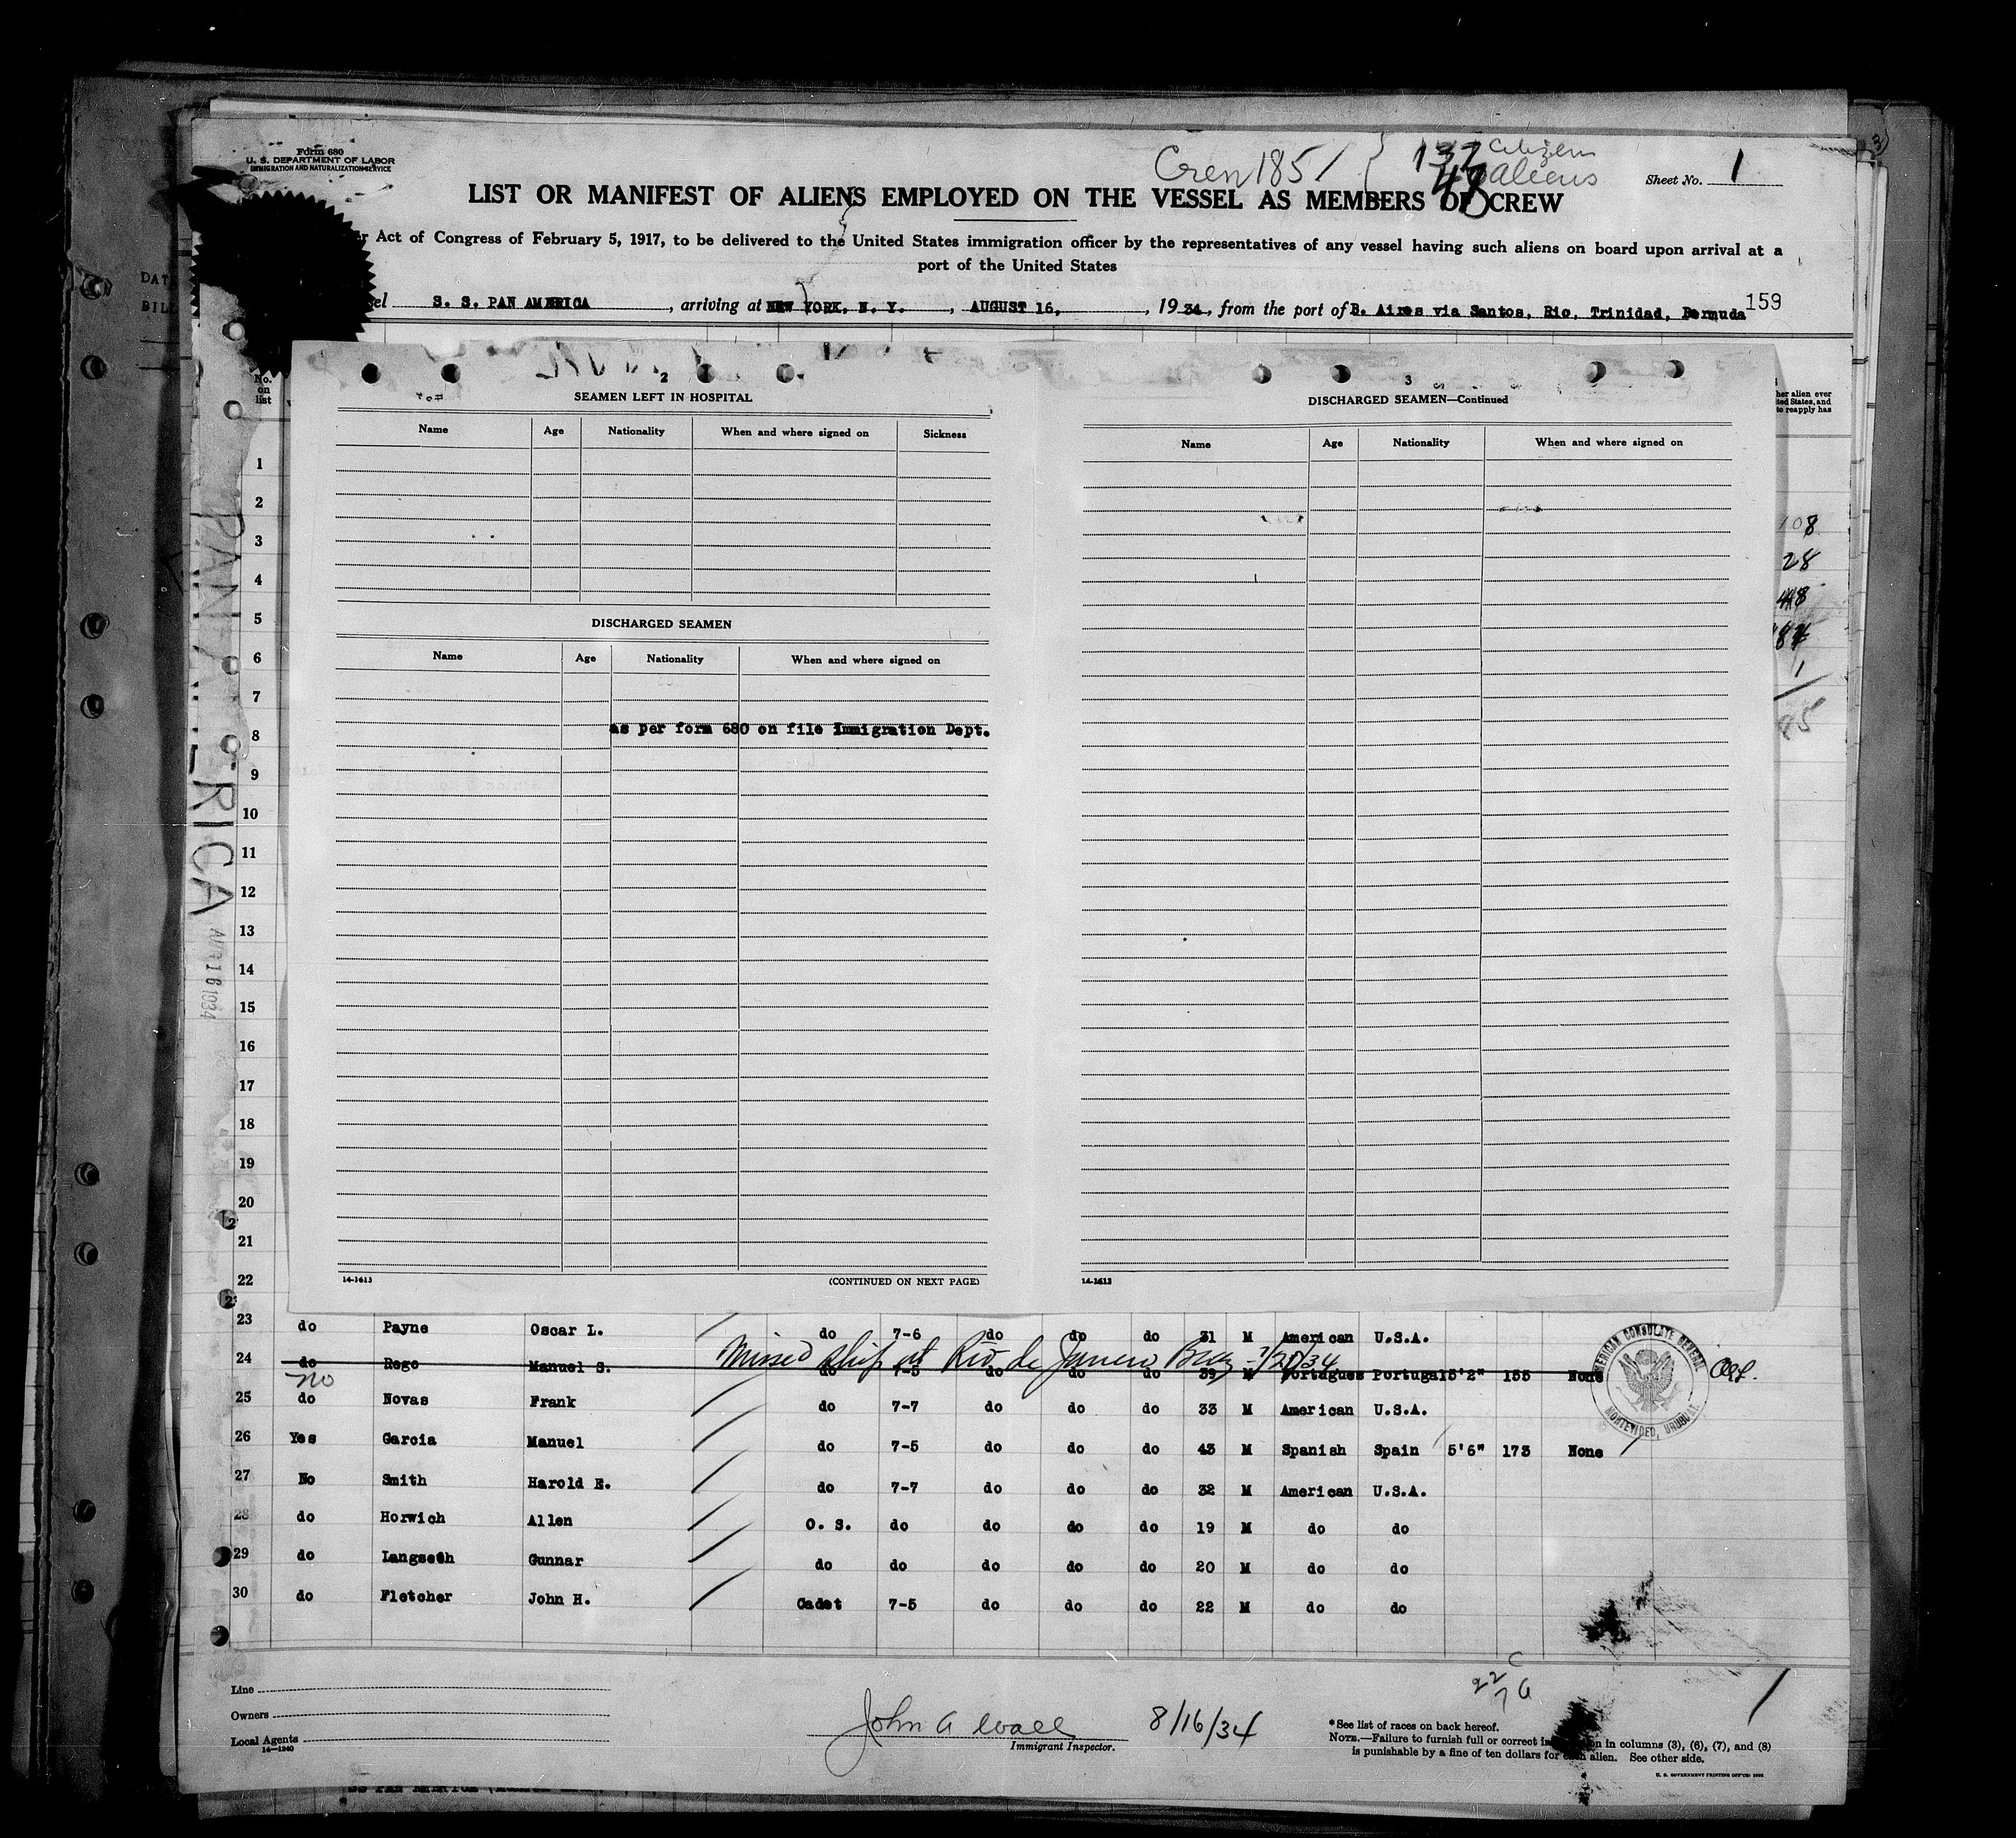 Form 680
U. S. DEPARTMENT OF LABOR
IMMIGRATION AND NATURALIZATION SERVICE
Crew 185 / { 137 Citizens
48 aliens
Sheet No. 1
LIST OR MANIFEST OF ALIENS EMPLOYED ON THE VESSEL AS MEMBERS OF CREW
Act of Congress of February 5, 1917, to be delivered to the United States immigration officer by the representatives of any vessel having such aliens on board upon arrival at a
port of the United States
S. S. PAN AMERICA, arriving at NEW YORK, N. Y., AUGUST 16, 1934, from the port of B. Aires via Santos, Rio, Trinidad, Bermuda 159
No. on list
her alien ever
ted States, and
to reapply has
2
SEAMEN LEFT IN HOSPITAL
Name Age Nationality When and where signed on Sickness
DISCHARGED SEAMEN
Name Age Nationality When and where signed on
as per form 680 on file Immigration Dept.
14-1613 (CONTINUED ON NEXT PAGE)
3
DISCHARGED SEAMEN—Continued
Name Age Nationality When and where signed on
14-1613
1
2
3
4
5
6
7
8
9
10
11
12
13
14
15
16
17
18
19
20
21
22
108
28
48
1
PAN AMERICA
AUG 16 1934
23 do Payne Oscar L. do 7-6 do do do 31 M American U.S.A.
Missed ship at Rio de Janeiro Braz - 7/21/34
24 do Rego Manuel S. do 7-5 do do do 39 M Portugues Portugal 5'2" 155 None
no
25 do Novas Frank do 7-7 do do do 33 M American U.S.A.
26 Yes Garcia Manuel do 7-5 do do do 43 M Spanish Spain 5'6" 173 None
27 No Smith Harold E. do 7-7 do do do 32 M American U.S.A.
28 do Horwich Allen O. S. do do do do 19 M do do
29 do Langseth Gunnar do do do do do 20 M do do
30 do Fletcher John H. Cadet 7-5 do do do 22 M do do
AMERICAN CONSULATE GENERAL
MONTEVIDEO, URUGUAY
22 C
7 A
Line
Owners
Local Agents
14-1240
John A Wall 8/16/34
Immigrant Inspector.
*See list of races on back hereof.
NOTE.—Failure to furnish full or correct in on in columns (3), (6), (7), and (8)
is punishable by a fine of ten dollars for each alien. See other side.
U. S. GOVERNMENT PRINTING OFFICE